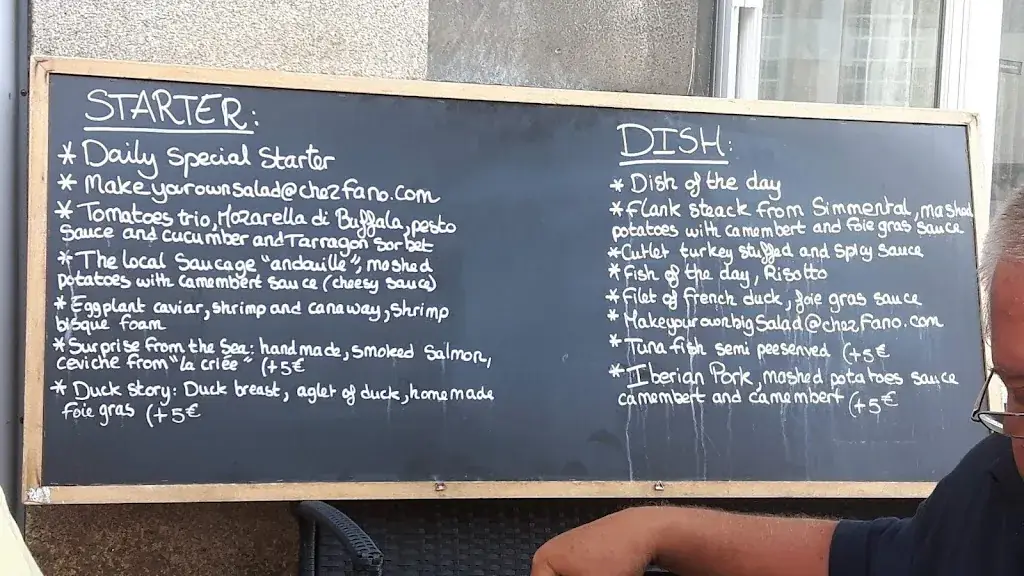 STARTER:
* Daily Special Starter
* Makeyourownsalad@chezfano.com
* Tomatoes trio, Mozarella di Buffala, pesto
sauce and cucumber and Tarragon sorbet
* The local Saucage "andouille", mashed
potatoes with camembert sauce (cheesy sauce)
* Eggplant caviar, shrimp and canaway, shrimp
bisque foam
* Surprise from the Sea: handmade, smoked salmon,
ceviche from "la criée" (+5€
* Duck story: Duck breast, aglet of duck, homemade
foie gras (+5€
DISH:
* Dish of the day
* Flank steack from Simmental, mashed
potatoes with camembert and foie gras sauce
* Cutlet turkey stuffed and spicy sauce
* Fish of the day, Risotto
* Filet of french duck, foie gras sauce
* MakeyourownbigSalad@chezfano.com
* Tuna fish semi peeserved (+5€
* Iberian Pork, mashed potatoes sauce
camembert and camembert (+5€